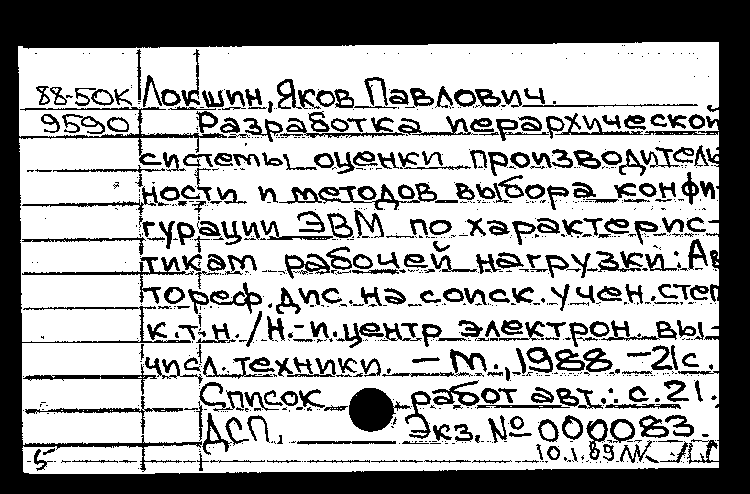 88-50К Локшин, Яков Павлович.
9590 Разработка иерархической
системы оценки производитель
ности и методов выбора конфи-
гурации ЭВМ по характерис-
тикам рабочей нагрузки: Ав
тореф. дис. на соиск. учен. степ
к.т.н. / Н.-и. центр электрон. вы-
числ. техники. – М., 1988. – 21с.
Список работ авт.: с. 21.
ДСП. Экз. № 000083.
5 10.1.89